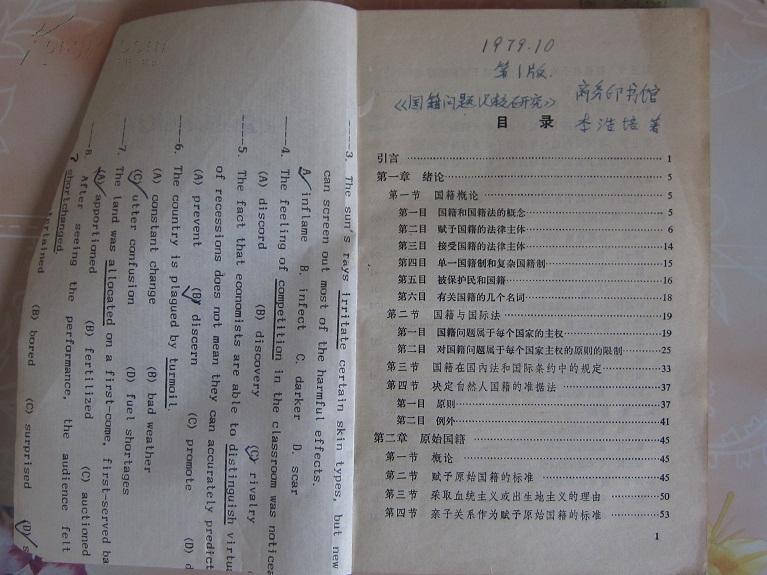 3. The sun's rays irritate certain skin types, but new
can screen out most of the harmful effects.
A. inflame B. infect C. darker D. scar
4. The feeling of competition in the classroom was noticea
(A) discord (B) discovery (C) rivalry
5. The fact that economists are able to distinguish virtu
of recessions does not mean they can accurately predict
(A) prevent (B) discern (C) promote (D) d
6. The country is plagued by turmoil
(A) constant change (B) bad weather
(C) utter confusion (D) fuel shortages
7. The land was allocated on a first-come, first-served ba
(A) apportioned (B) fertilized (C) auctioned
8. After seeing the performance, the audience felt
shortchanged
(B) bored (C) surprised (D) s
1979.10
第1版.
《国籍问题比较研究》 商务印书馆
李浩培 著
目 录
引言 1
第一章 绪论 5
第一节 国籍概论 5
第一目 国籍和国籍法的概念 5
第二目 赋予国籍的法律主体 6
第三目 接受国籍的法律主体 14
第四目 单一国籍制和复杂国籍制 15
第五目 被保护民和国籍 16
第六目 有关国籍的几个名词 18
第二节 国籍与国际法 19
第一目 国籍问题属于每个国家的主权 19
第二目 对国籍问题属于每个国家主权的原则的限制 25
第三节 国籍在国内法和国际条约中的规定 33
第四节 决定自然人国籍的准据法 37
第一目 原则 37
第二目 例外 41
第二章 原始国籍 45
第一节 概论 45
第二节 赋予原始国籍的标准 45
第三节 采取血统主义或出生地主义的理由 50
第四节 亲子关系作为赋予原始国籍的标准 53
1